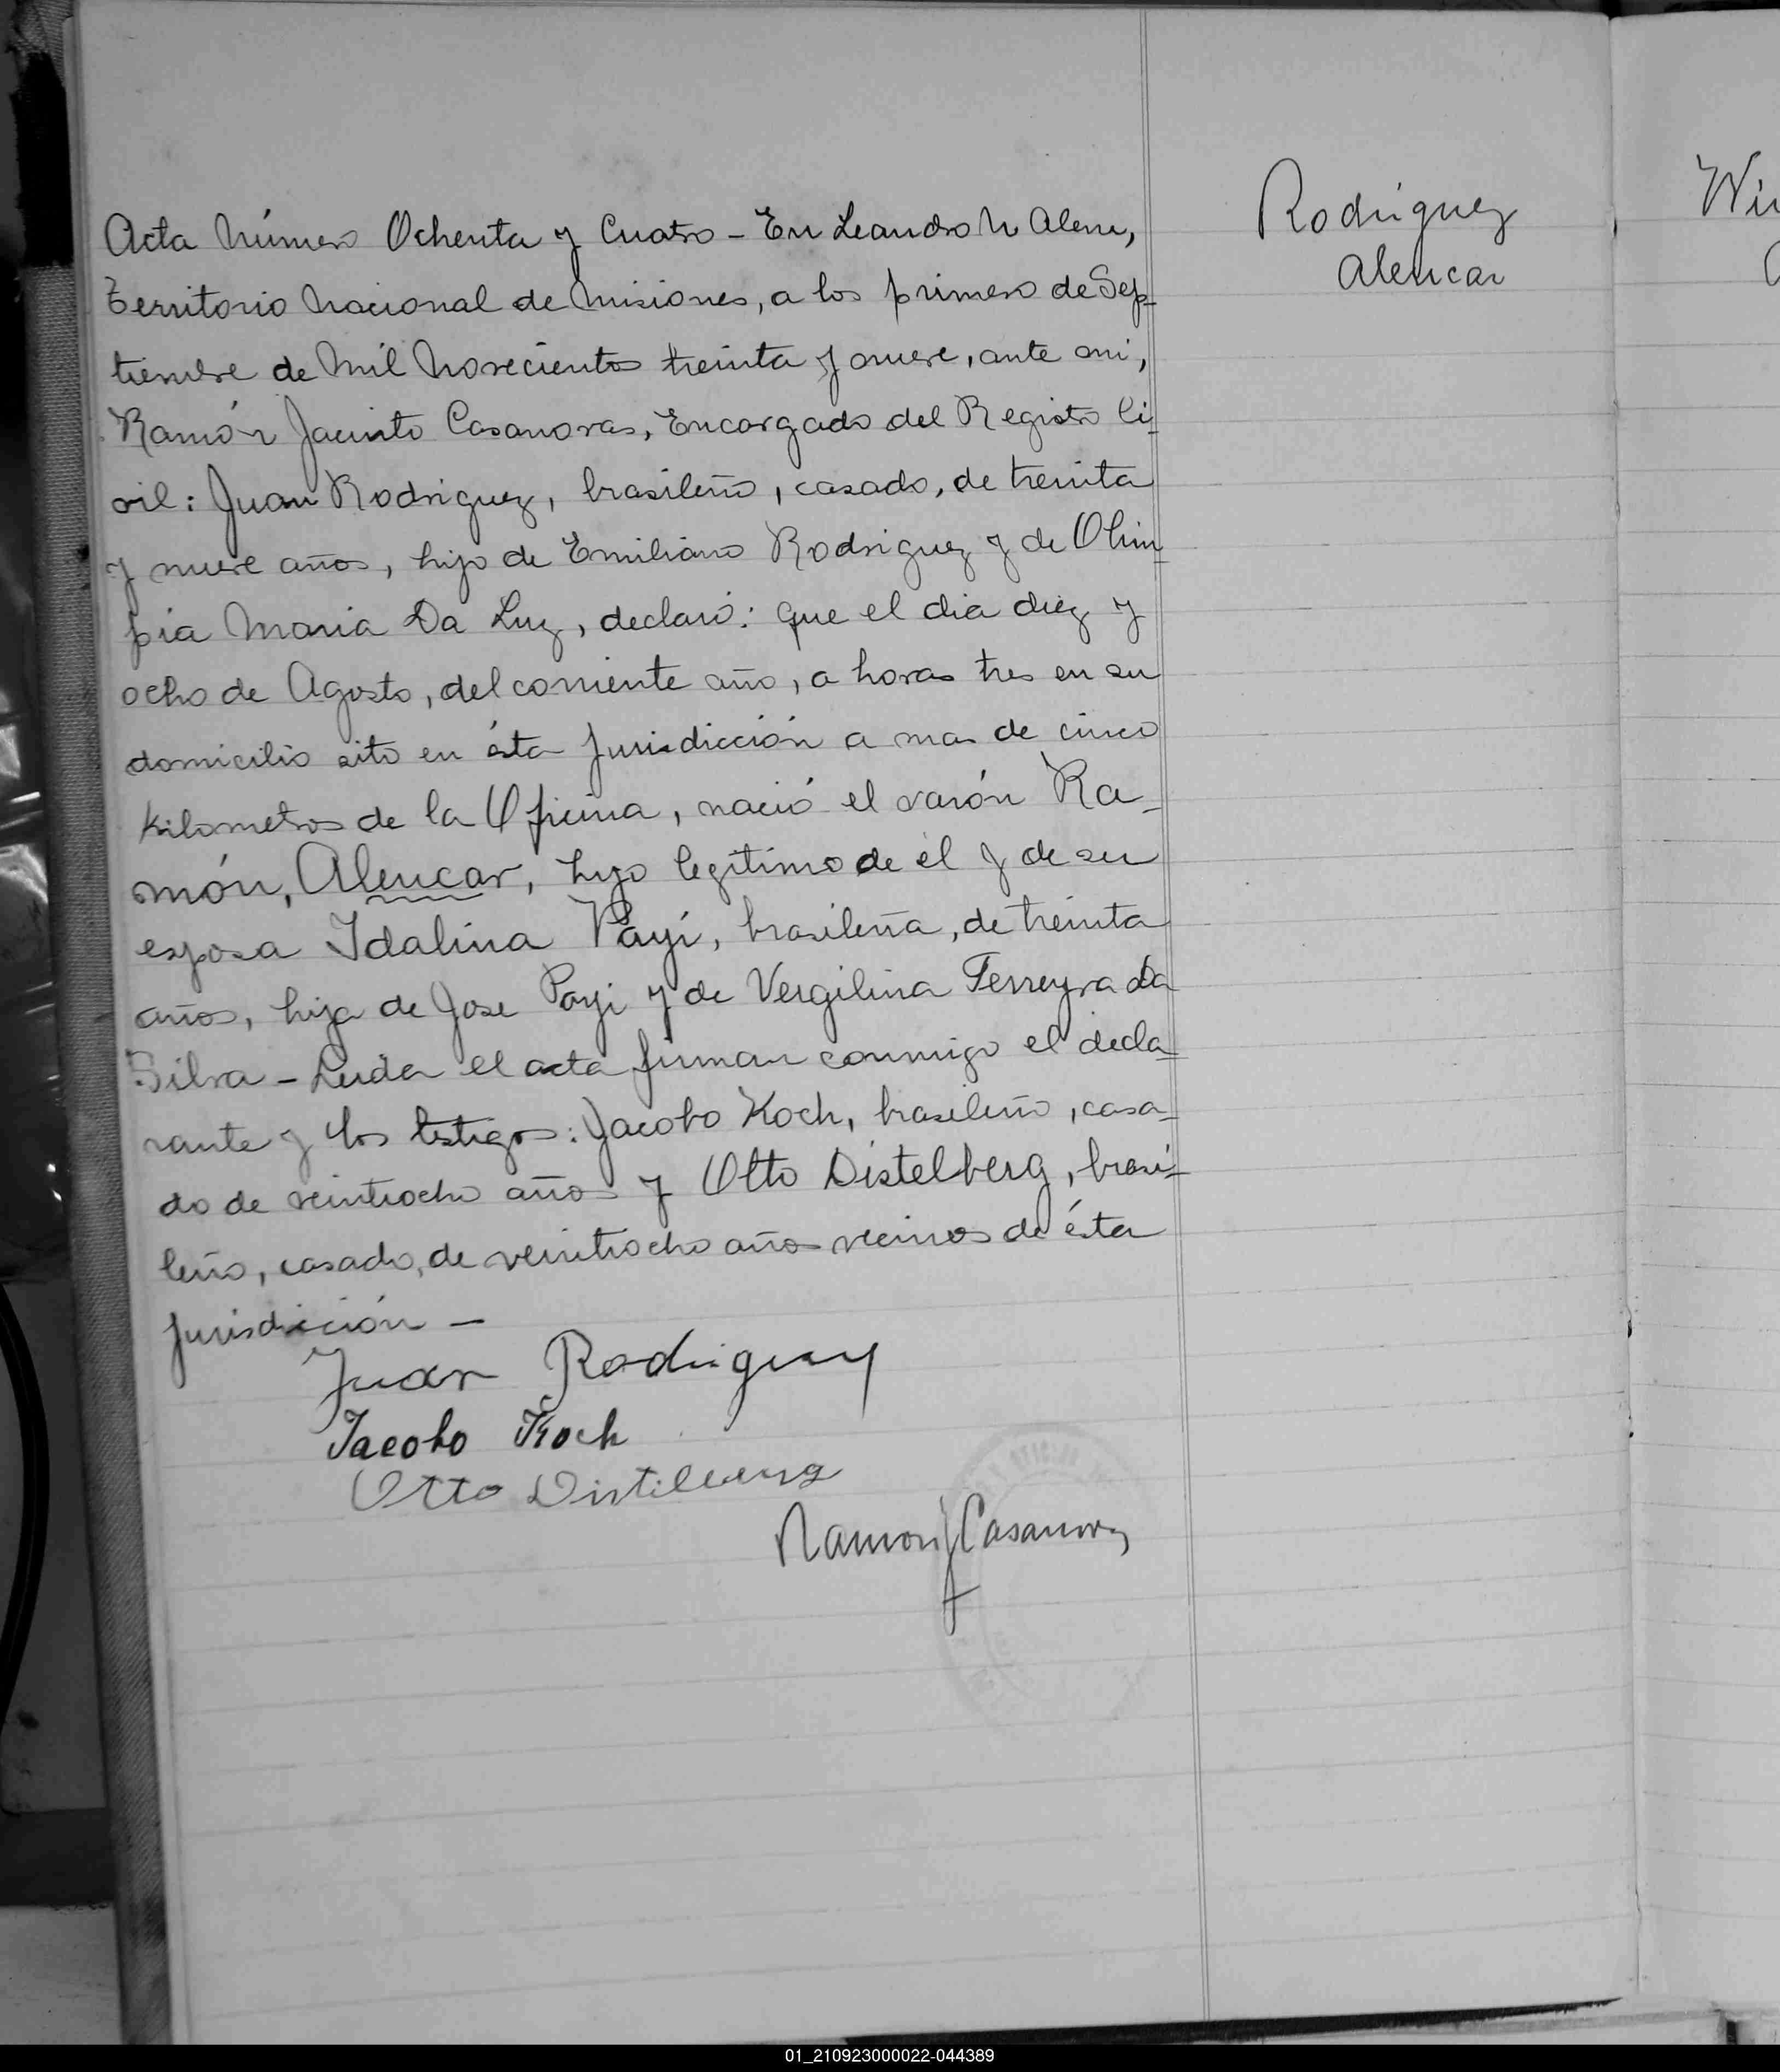 Acta Número Ochenta y Cuatro - En Leandro N Alem,
Territorio Nacional de Misiones, a los primero de Sep-
tiembre de Mil Novecientos treinta y nueve, ante mi,
Ramón Jacinto Casanovas, Encargado del Registro Ci-
vil: Juan Rodriguez, brasileño, casado, de treinta
y nueve años, hijo de Emiliano Rodriguez y de Olim-
pia Maria Da Luz, declaró: que el dia diez y
ocho de Agosto, del corriente año, a horas tres en su
domicilio sito en ésta Jurisdicción a mas de cinco
Kilometros de la Oficina, nació el varón Ra-
món, Alencar, hijo legítimo de él y de su
esposa Idalina Payi, brasileña, de treinta
años, hija de Jose Payi y de Vergilina Ferreyra Da
Silva - Leida el acta firman conmigo el decla-
rante y los testigos: Jacobo Koch, brasileño, casa-
do de veintiocho años y Otto Distelberg, brasi-
leño, casado, de veintiocho años vecinos de ésta
Jurisdicción -
Juan Rodriguez
Jacobo Koch
Otto Distelberg
Ramon J Casanovas
Rodriguez
Alencar
Wi
01_210923000022-044389